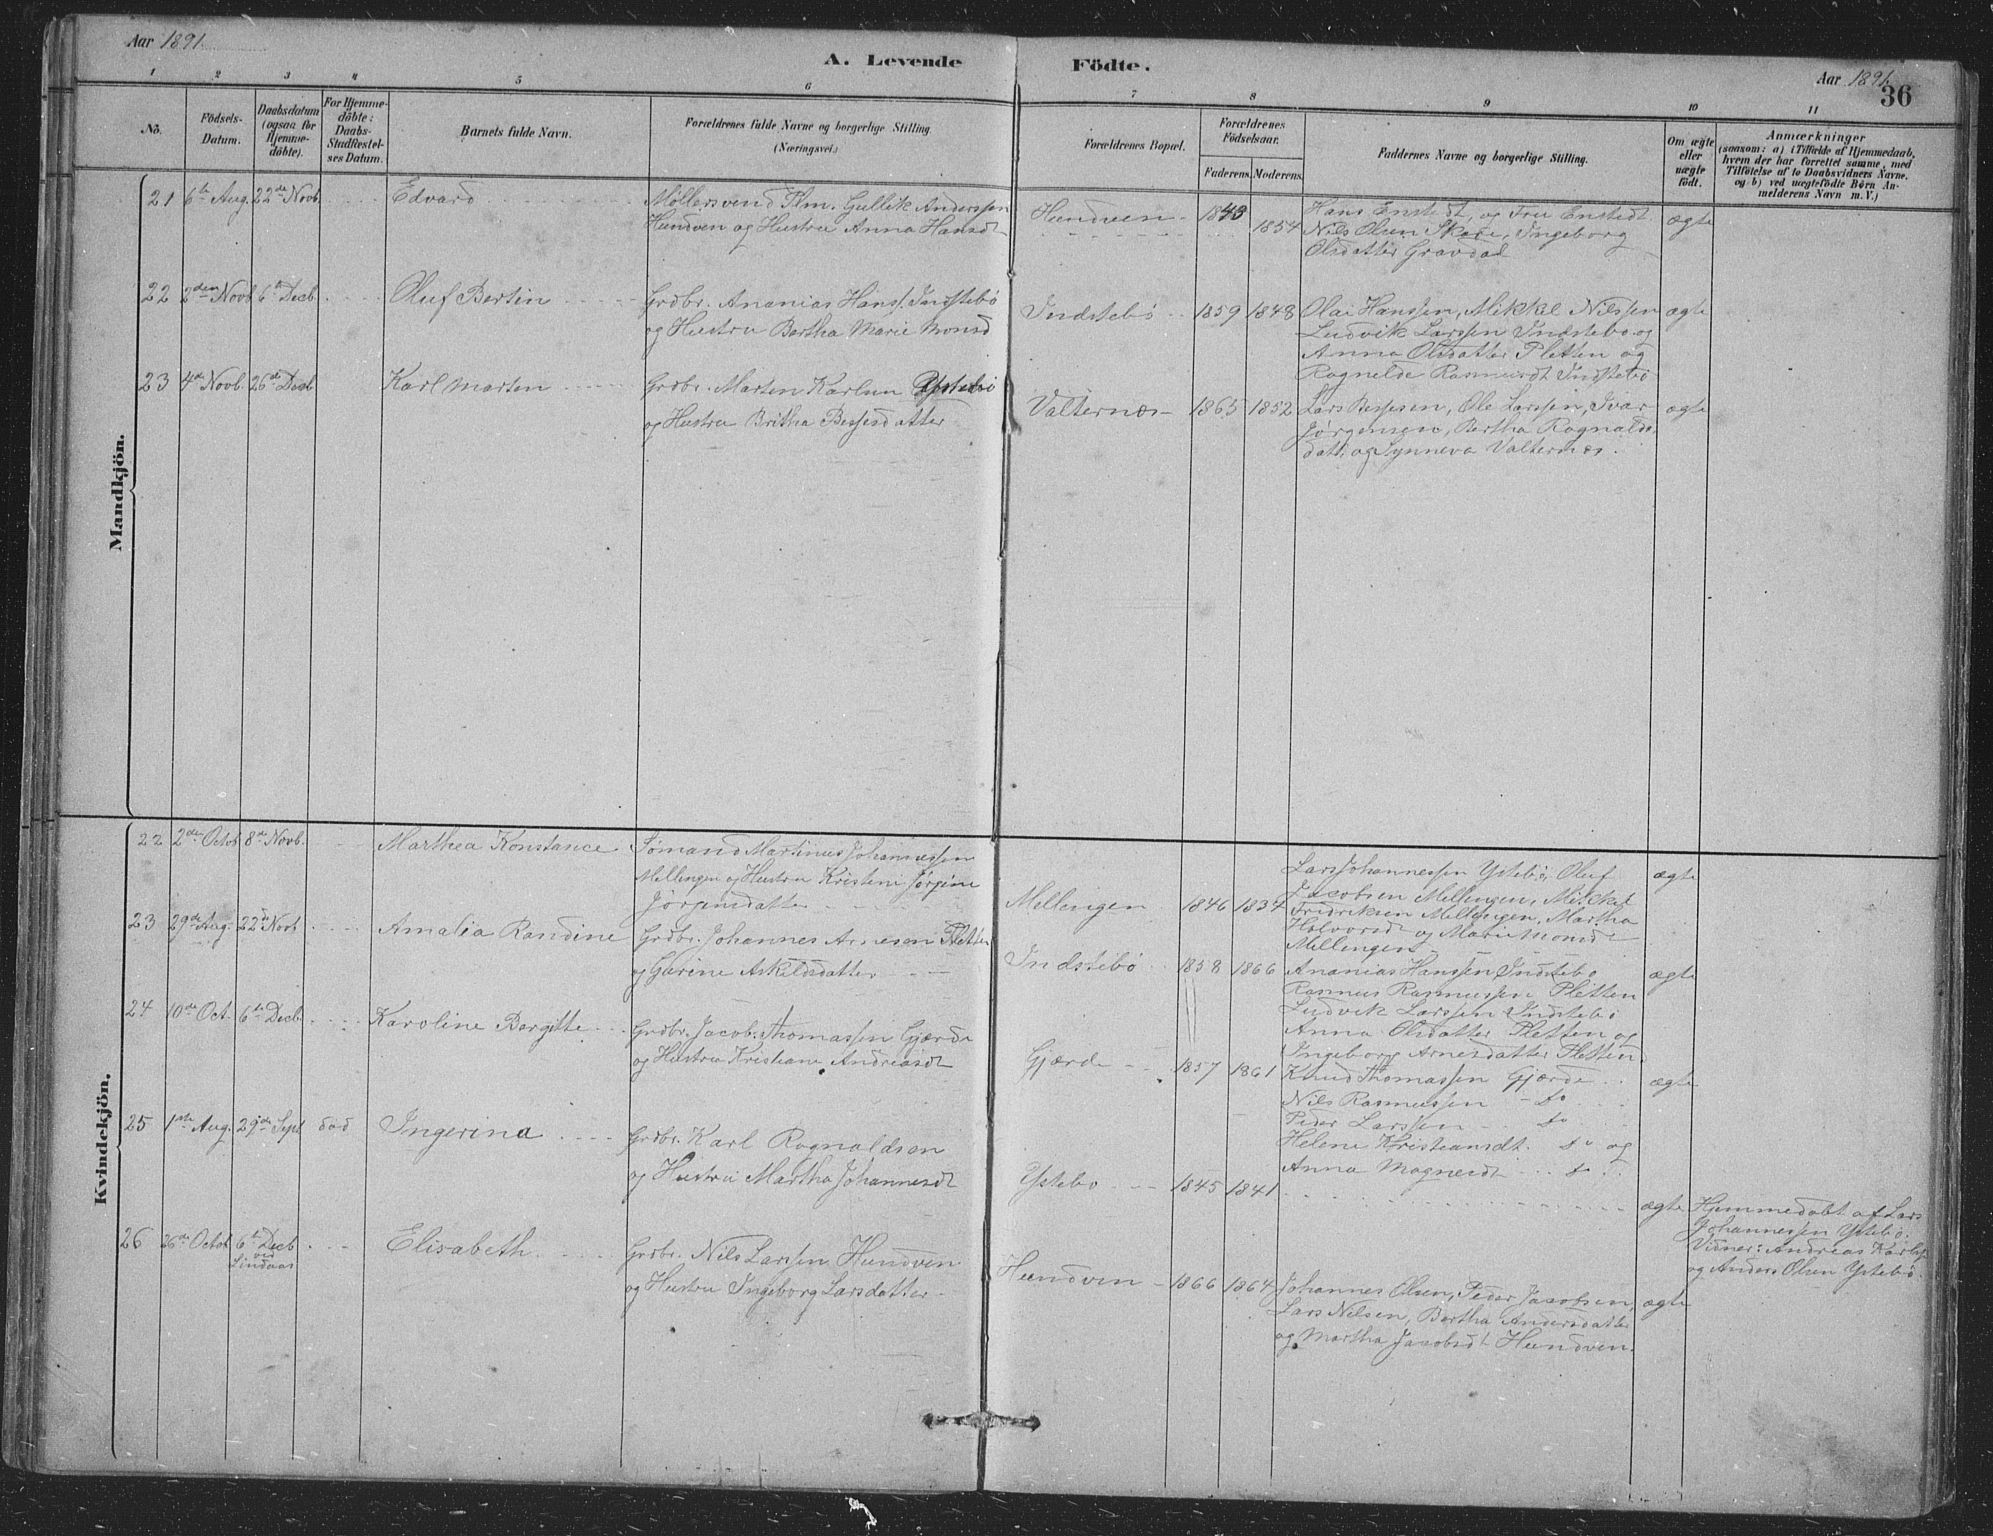 Aar 1891.
A. Levende Födte.
Aar 1891.
36
1 2 3 4 5 6 7 8 9 10 11
No.
Födsels-
Datum.
Daabsdatum
(ogsaa for
Hjemme-
döbte).
For Hjemme-
döbte:
Daabs-
Stadfæstel-
ses Datum.
Barnets fulde Navn.
Forældrenes fulde Navne og borgerlige Stilling
(Næringsvei.)
Forældrenes Bopæl.
Forældrenes
Födselsaar.
Faderens. Moderens.
Faddernes Navne og borgerlige Stilling.
Om ægte
eller
uægte
født.
Anmærkninger
(saasom: a) i Tilfælde af Hjemmedaab,
hvem der har forrettet samme, med
Tilföielse af to Daabsvidners Navne.
og b) ved uægteføte Börn An-
melderens Navn m. V.)
Mandkjön.
21 6te Aug. 22de Novb. Edvard
Möllersvend Gullik Anderssen
Hundven og Hustru Anna Hansdt
Hundven 1843 1854
Hans Enstedt, og Fru Enstedt
Nils Olsen Skare, Ingeborg
Olsdatter Gravdal
ægte
22 2den Novb 6te Decb. Oluf Bertin
Grdbr. Ananias Hanss. Indstebö
og Hustru Bertha Marie Monsd
Indstebö 1859 1848
Olai Hanssen, Mikkel Nilssen
Ludvik Larssen Indstebö og
Anna Olsdatter Pletten og
Ragnelde Rasmusdt Indstebö
ægte
23 4de Novb. 26de Decb Karl Marten
Grdbr. Marten Karlsen Ystebö
og Hustru Britha Bessesdatter
Valternæs 1863 1852
Lars Bessesen, Ole Larssen, Ivar
Jörgensen, Bertha Ragnalds-
datt. og Synneva Valternæs.
ægte
Kvindekjön.
22 2den Octob 8de Novb. Marthea Konstance
Sömand Martinus Johannessen
Mellingen og Hustru Kristeni Jörgine
Jörgensdatter
Mellingen 1846 1834
Lars Johannessen Ystebö, Oluf
Jacobsen Mellingen, Mikkal
Fredriksen Mellingen, Martha
Halvorsdt og Marie Monsdt
Mellingen
ægte
23 29de Aug. 22de Novb Amalia Randine
Grdbr. Johannes Arnesen Pletten
og Gurine Askildsdatter
Indstebö 1858 1866
Ananias Hanssen Indstebö
Rasmus Rasmussen Pletten
Ludvik Larssen Indstebö
Anna Olsdatter Pletten og
Ingeborg Arnesdatter Pletten.
ægte
24 10de Oct. 6te Decb. Karoline Bergitte
Grdbr. Jacob Thomassen Gjærde
og Hustru Kristiane Andreasdt
Gjærde 1857 1861
Knud Thomassen Gjærde
Nils Rasmussen do
Peder Larssen do
Helene Kristiansdt. do og
Anna Magnesdt do
ægte
25 1ste Aug. 29de Sept död Ingerina
Grdbr. Karl Ragnaldsen
og Hustru Martha Johannesdt
Ystebö 1845 1841
ægte
Hjemmedöbt af Lars
Johannessen Ystebö.
Vidner: Andreas Karls.
og Anders Olsen Ystebö.
26 26de Octob. 6te Decb
ved
Lindaas
Elisabeth.
Grdbr. Nils Larssen Hundven
og Hustru Ingeborg Larsdatter
Hundven 1866 1864
Johannes Olsen, Peder Jacobsen,
Lars Nilsen, Bertha Andersdatter
og Martha Jacobsdt Hundven.
ægte